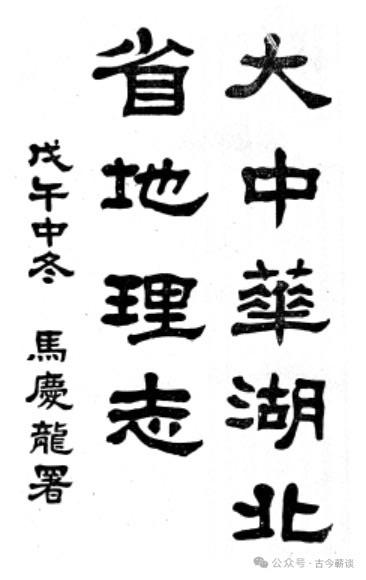 大中華湖北
省地理志
戊午中冬 馬慶龍署
公众号·古今蕲谈